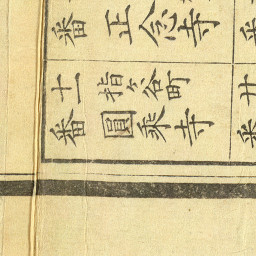 番 正念寺
十一 指ヶ谷町
番 圓乗寺
廿
番